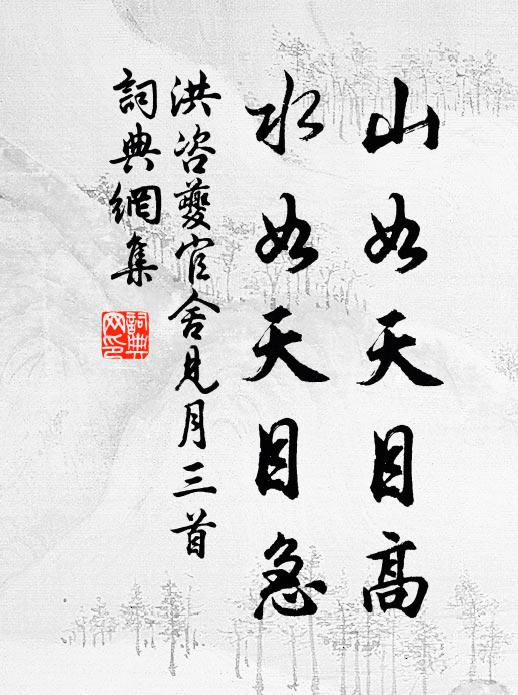 山如天目高
水如天目急
洪咨夔官舍見月三首
詞典網集
詞典網印